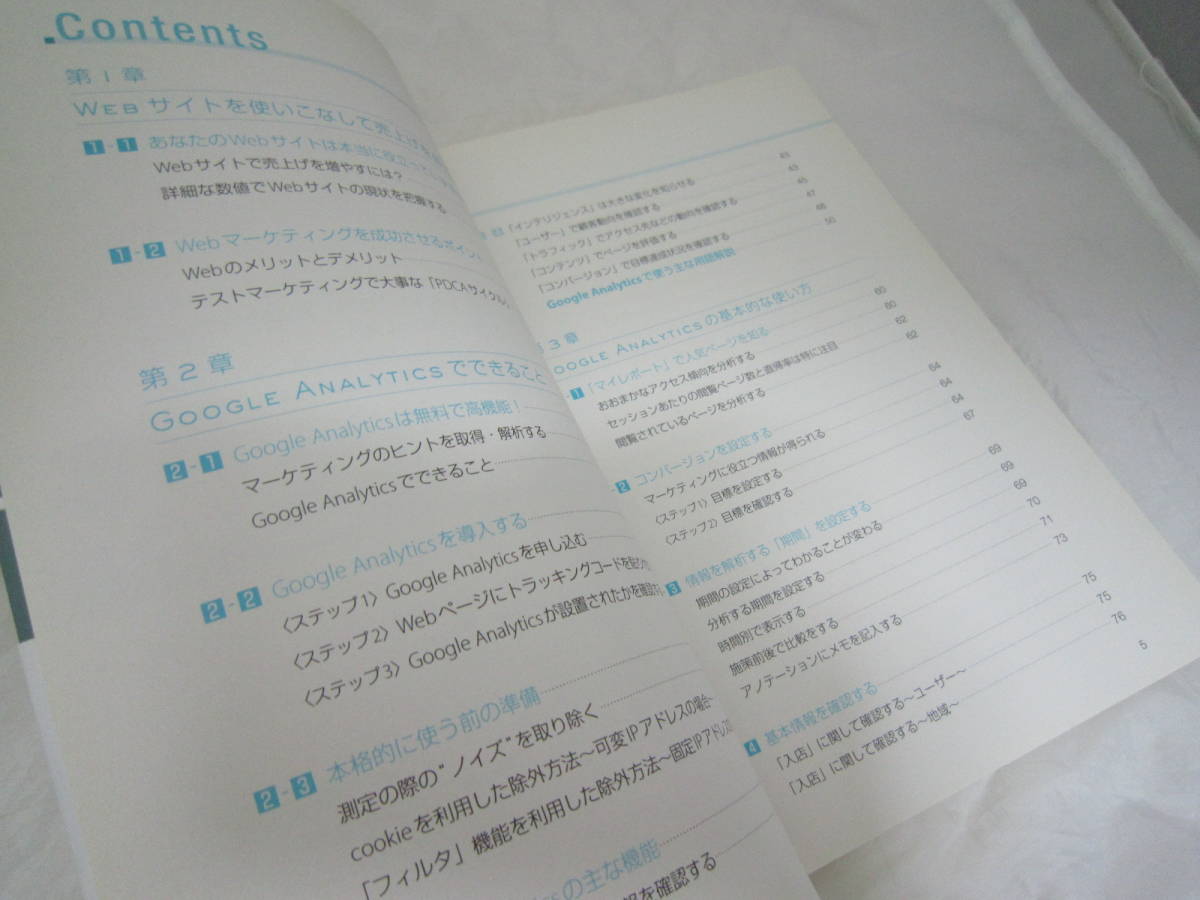 Contents
第1章
WEBサイトを使いこなして売上げを
1-1 あなたのWebサイトは本当に役立って
Webサイトで売上げを増やすには?
詳細な数値でWebサイトの現状を把握する
1-2 Webマーケティングを成功させるポイント
Webのメリットとデメリット
テストマーケティングで大事な「PDCAサイクル」
第2章
GOOGLE ANALYTICSでできること
2-1 Google Analyticsは無料で高機能!
マーケティングのヒントを取得・解析する
Google Analyticsでできること
2-2 Google Analyticsを導入する
〈ステップ1〉Google Analyticsを申し込む
〈ステップ2〉Webページにトラッキングコードを
〈ステップ3〉Google Analyticsが設置されたかを確認
2-3 本格的に使う前の準備
測定の際の“ノイズ”を取り除く
cookieを利用した除外方法〜可変IPアドレスの場合〜
「フィルタ」機能を利用した除外方法〜固定IPアドレス
icsの主な機能
を確認する
「インテリジェンス」は大きな変化を知らせる 43
「ユーザー」で顧客動向を確認する 43
「トラフィック」でアクセス先などの動向を確認する 45
「コンテンツ」でページを評価する 47
「コンバージョン」で目標達成状況を確認する 48
Google Analyticsで使う主な用語解説 50
3章
OOGLE ANALYTICSの基本的な使い方
-1 「マイレポート」で人気ページを知る 60
おおまかなアクセス傾向を分析する 60
セッションあたりの閲覧ページ数と直帰率は特に注目 62
閲覧されているページを分析する 62
-2 コンバージョンを設定する 64
マーケティングに役立つ情報が得られる 64
〈ステップ1〉目標を設定する 64
〈ステップ2〉目標を確認する 67
3 情報を解析する「期間」を設定する 69
期間の設定によってわかることが変わる 69
分析する期間を設定する 69
時間別で表示する 70
施策前後で比較をする 71
アノテーションにメモを記入する 73
4 基本情報を確認する 75
「入店」に関して確認する〜ユーザー〜 75
「入店」に関して確認する〜地域〜 76
5